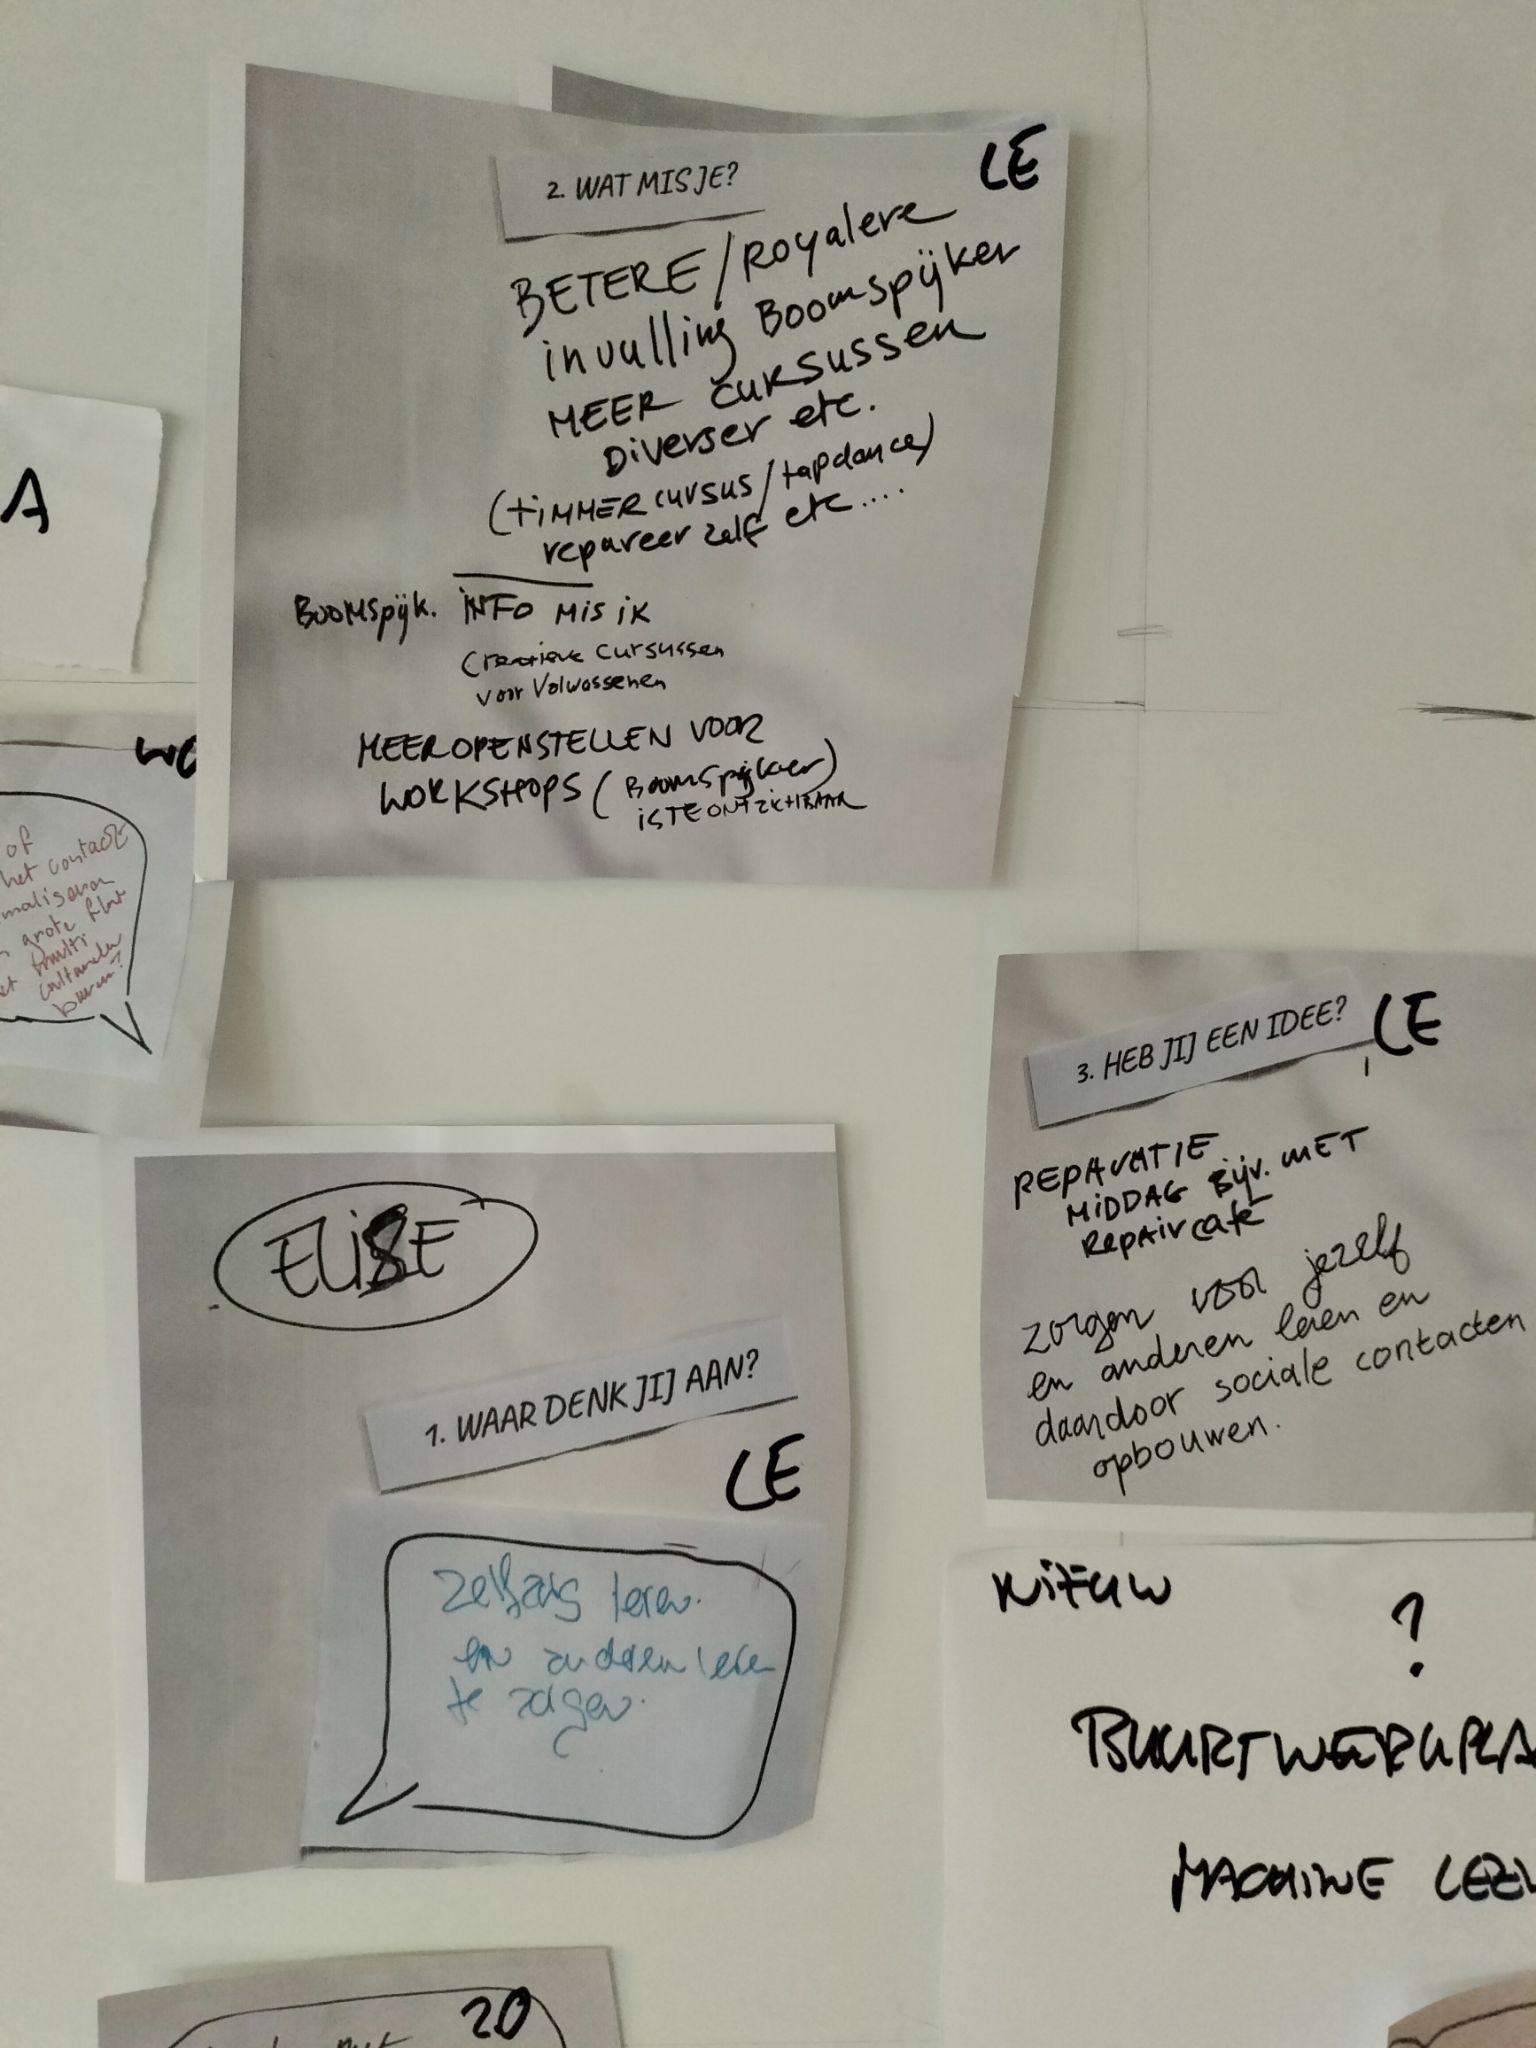 2. WAT MIS JE?
LE
BETERE/ROYALERE
invulling BOOMSPIJKER
MEER CURSUSSEN
DIVERSER etc.
(TIMMERCURSUS/tapdance)
repareer zelf etc....
BOOMSPIJK. INFO MIS IK
Creatieve Cursussen
voor Volwassenen
MEER OPENSTELLEN VOOR
WORKSHOPS (BoomSpijker)
IS TE ONZICHTBAAR
A
WO
of
het contact
grote
multi
3. HEB JIJ EEN IDEE?
LE
REPARATIE
MIDDAG Bijv. MET
Repaircafe
zorgen voor jezelf
en anderen leren en
daardoor sociale contacten
opbouwen.
ELISE
1. WAAR DENK JIJ AAN?
LE
Zelfzorg leren.
en anderen leren
te zorgen.
NIEUW
?
BUURTWERKPLA
MACHINE LEEN
20